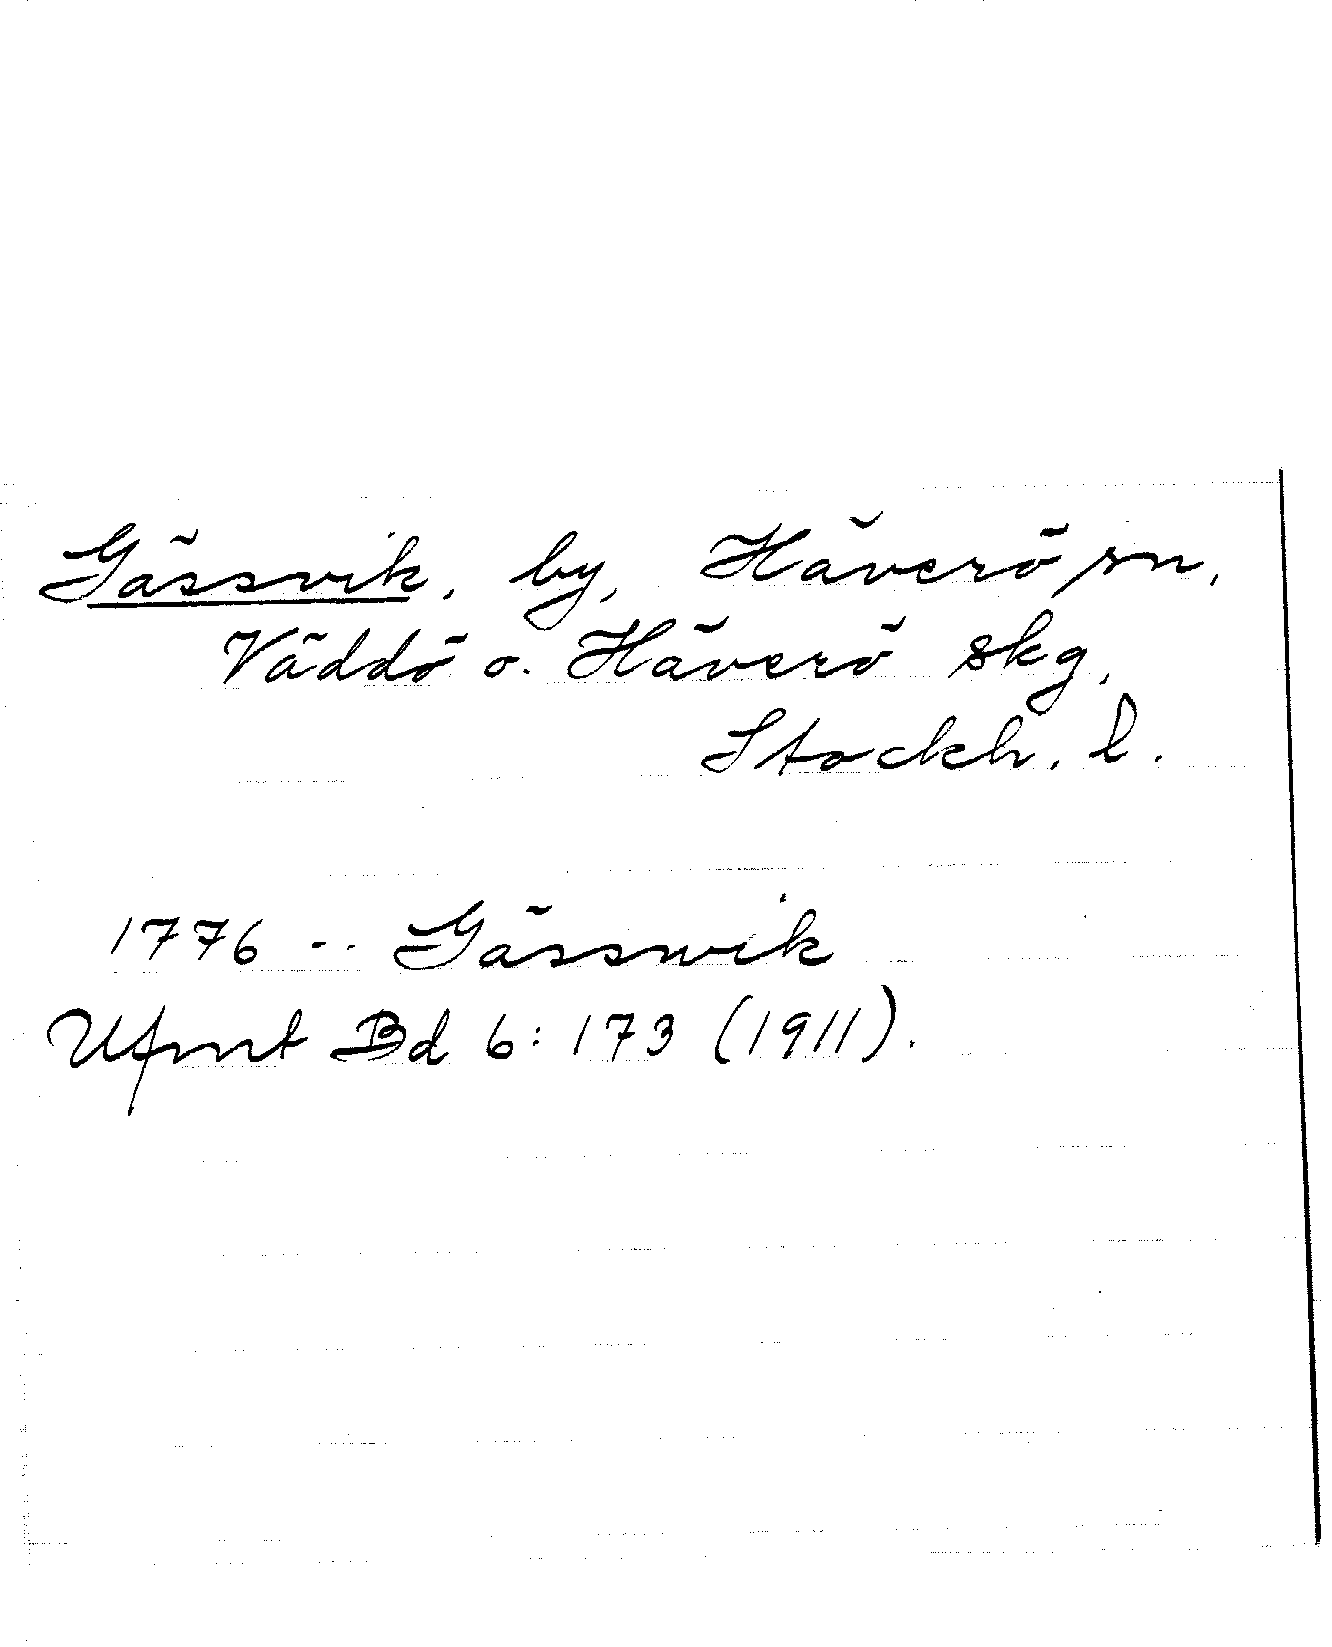 Gässvik, by, Häverö sn,
Väddö o. Häverö skg,
Stockh. l.
1776 -- Gässwik
Ufmt Bd 6: 173 (1911).